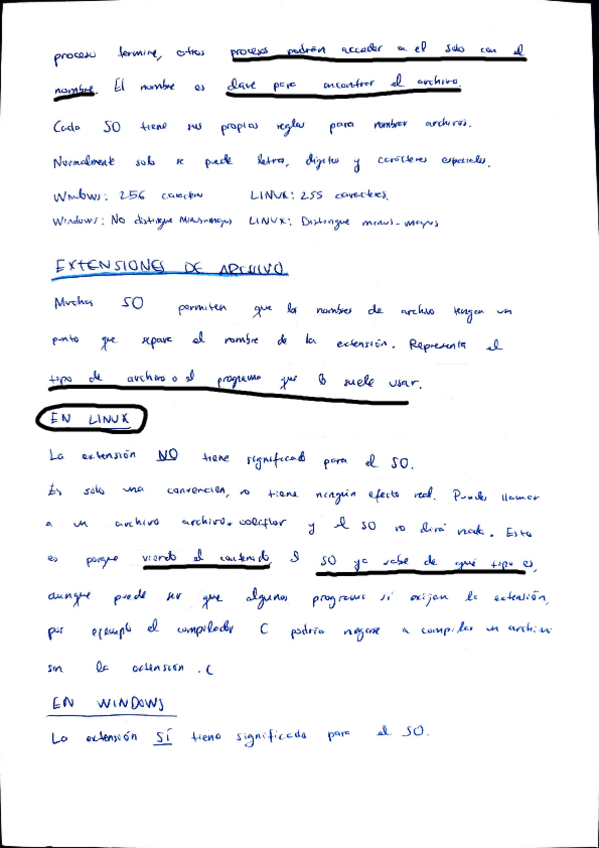 proceso termine, otros procesos podrán acceder a el solo con el
nombre. El nombre es clave para encontrar el archivo
Cada SO tiene sus propias reglas para nombrar archivos.
Normalmente solo se puede letras, dígitos y carácteres especiales.
Windows: 256 caracteres LINUX: 255 caracteres.
Windows: No distingue Minus-mayus LINUX: Distingue minus-mayus
EXTENSIONES DE ARCHIVO
Muchos SO permiten que los nombres de archivo tengan un
punto que separa el nombre de la extensión. Representa el
tipo de archivo o el programa que lo suele usar.
EN LINUX
La extensión NO tiene significado para el SO.
Es solo una convención, no tiene ningún efecto real. Puedes llamar
a un archivo archivo.coliflor y el SO no dirá nada. Esto
es porque viendo el contenido el SO ya sabe de qué tipo es,
aunque puede ser que algunos programas sí exijan la extensión,
por ejemplo el compilador C podría negarse a compilar un archivo
sin la extensión .C
EN WINDOWS
La extensión SÍ tiene significado para el SO.